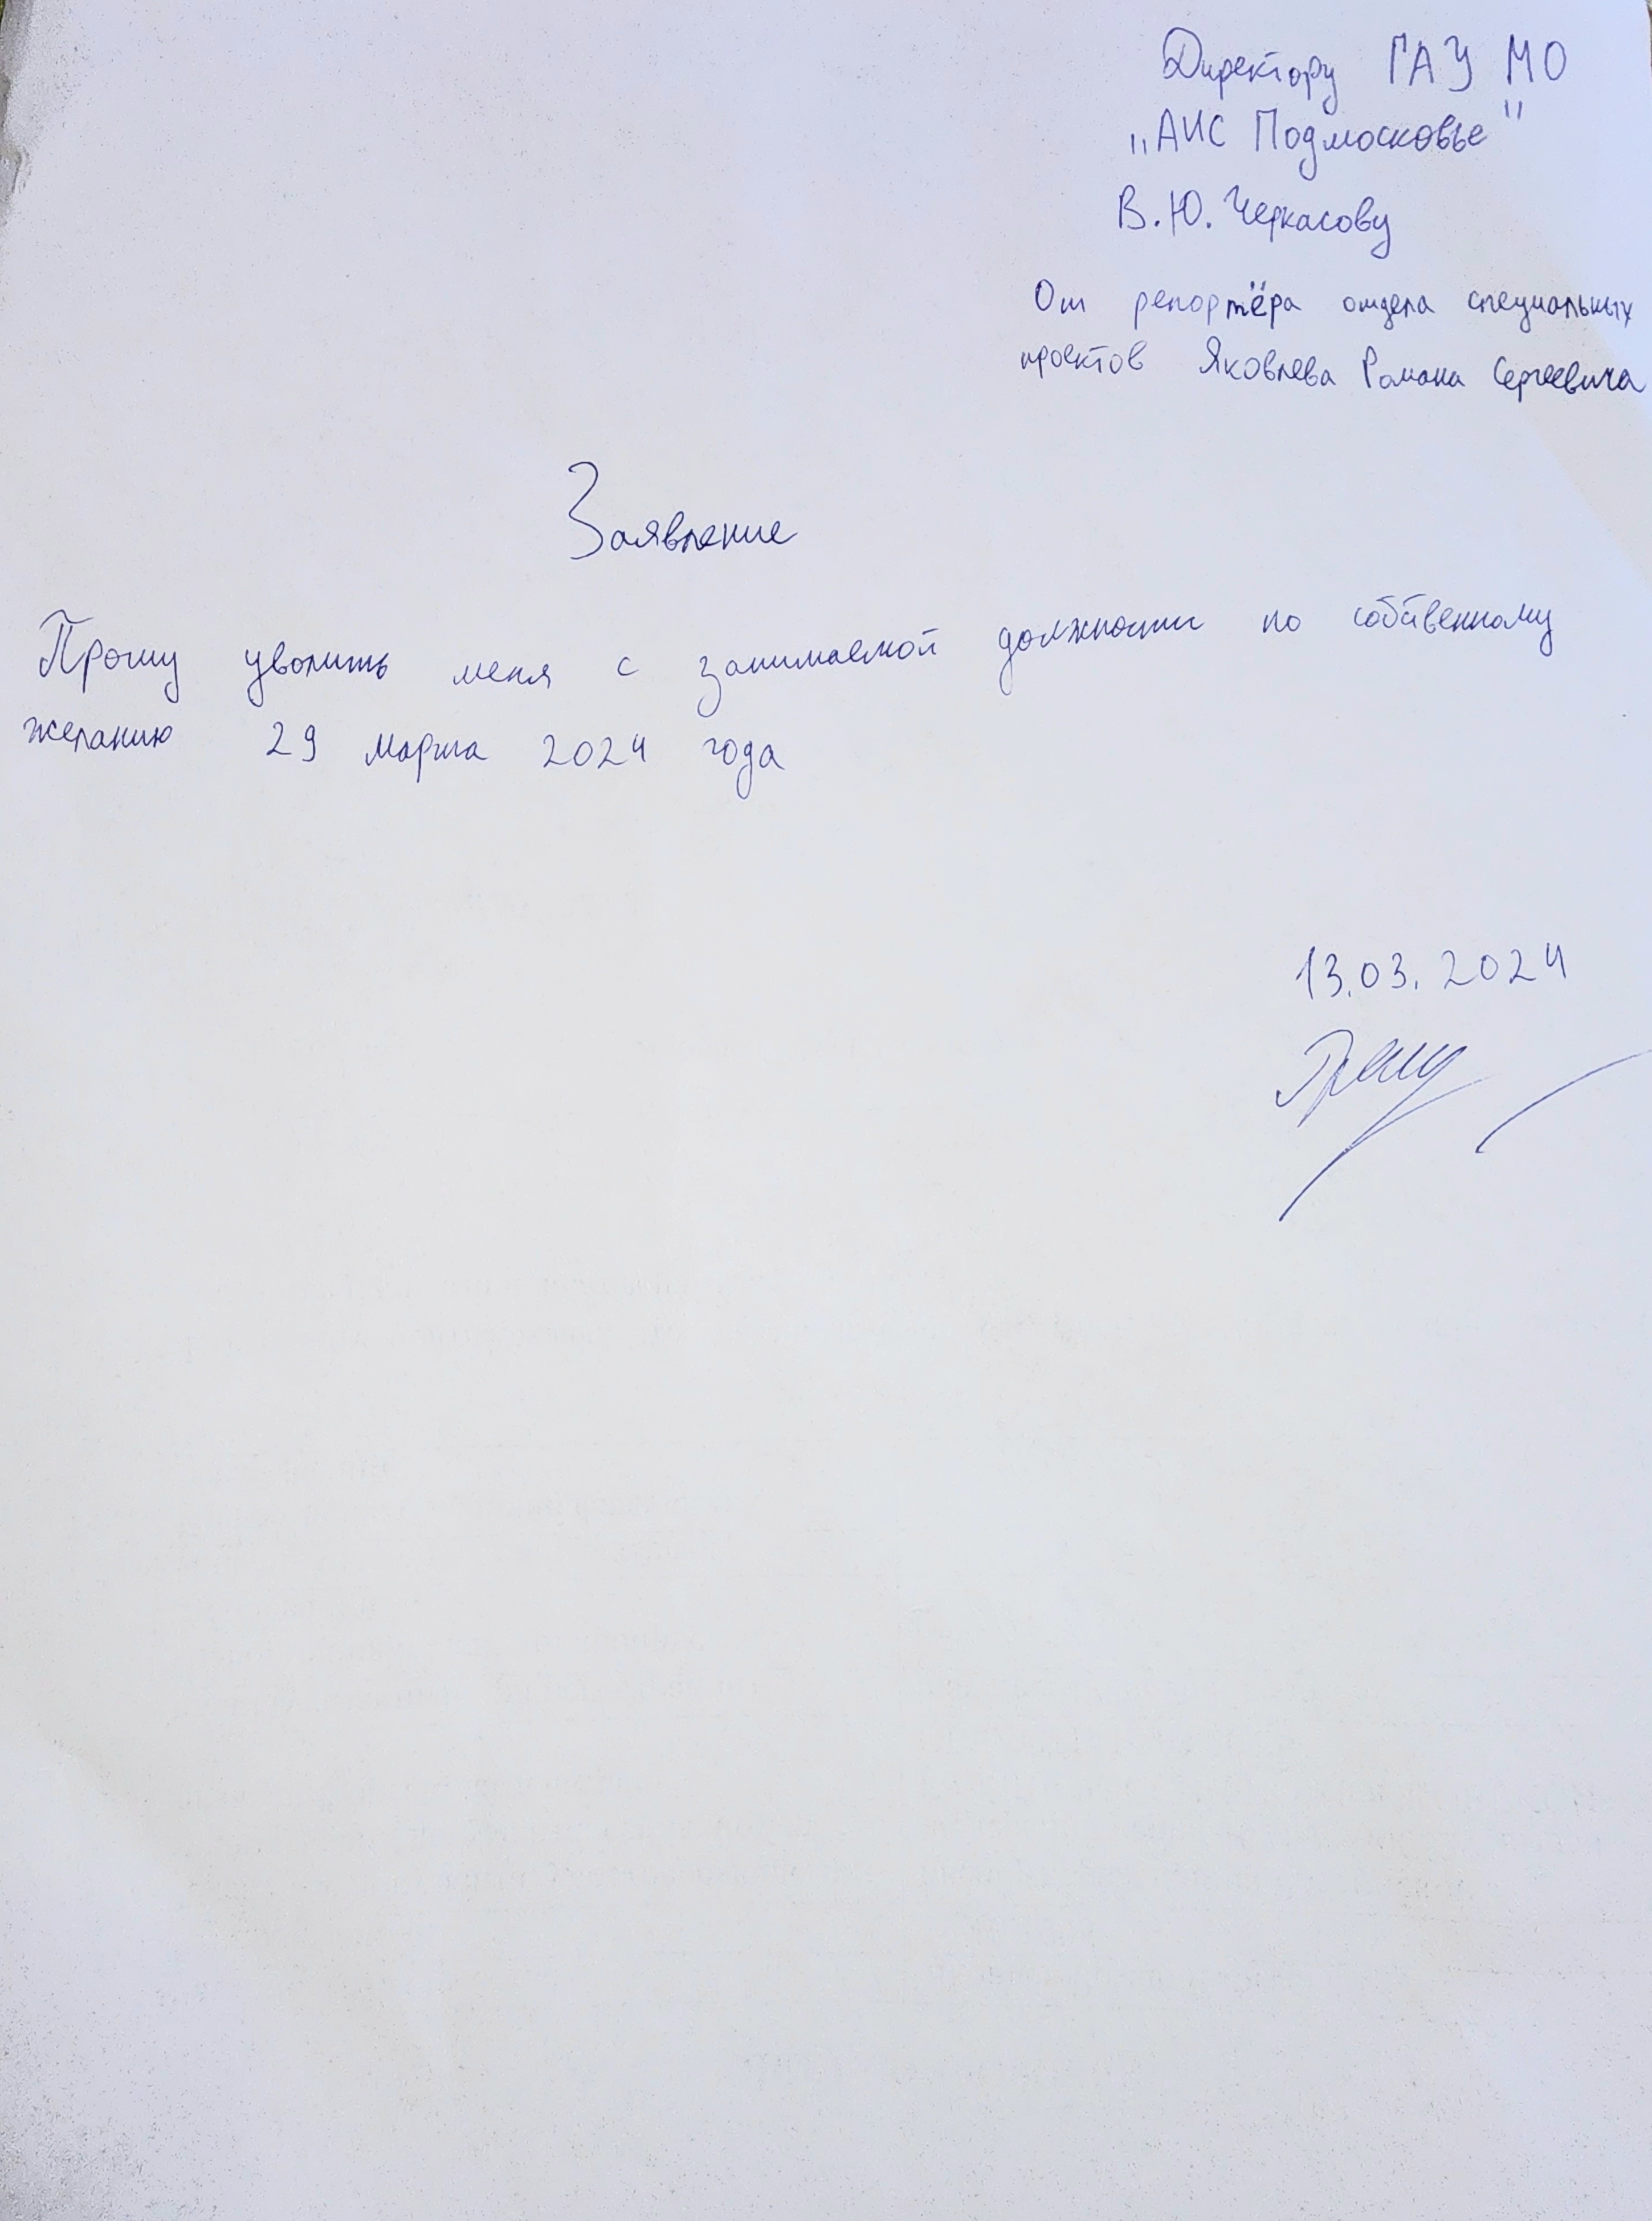 Директору ГАУ МО
„АИС Подмосковье"
В.Ю. Черкасову
От репортёра отдела специальных
проектов Яковлева Романа Сергеевича
Заявление
Прошу уволить меня с занимаемой должности по собственному
желанию 29 марта 2024 года
13.03.2024